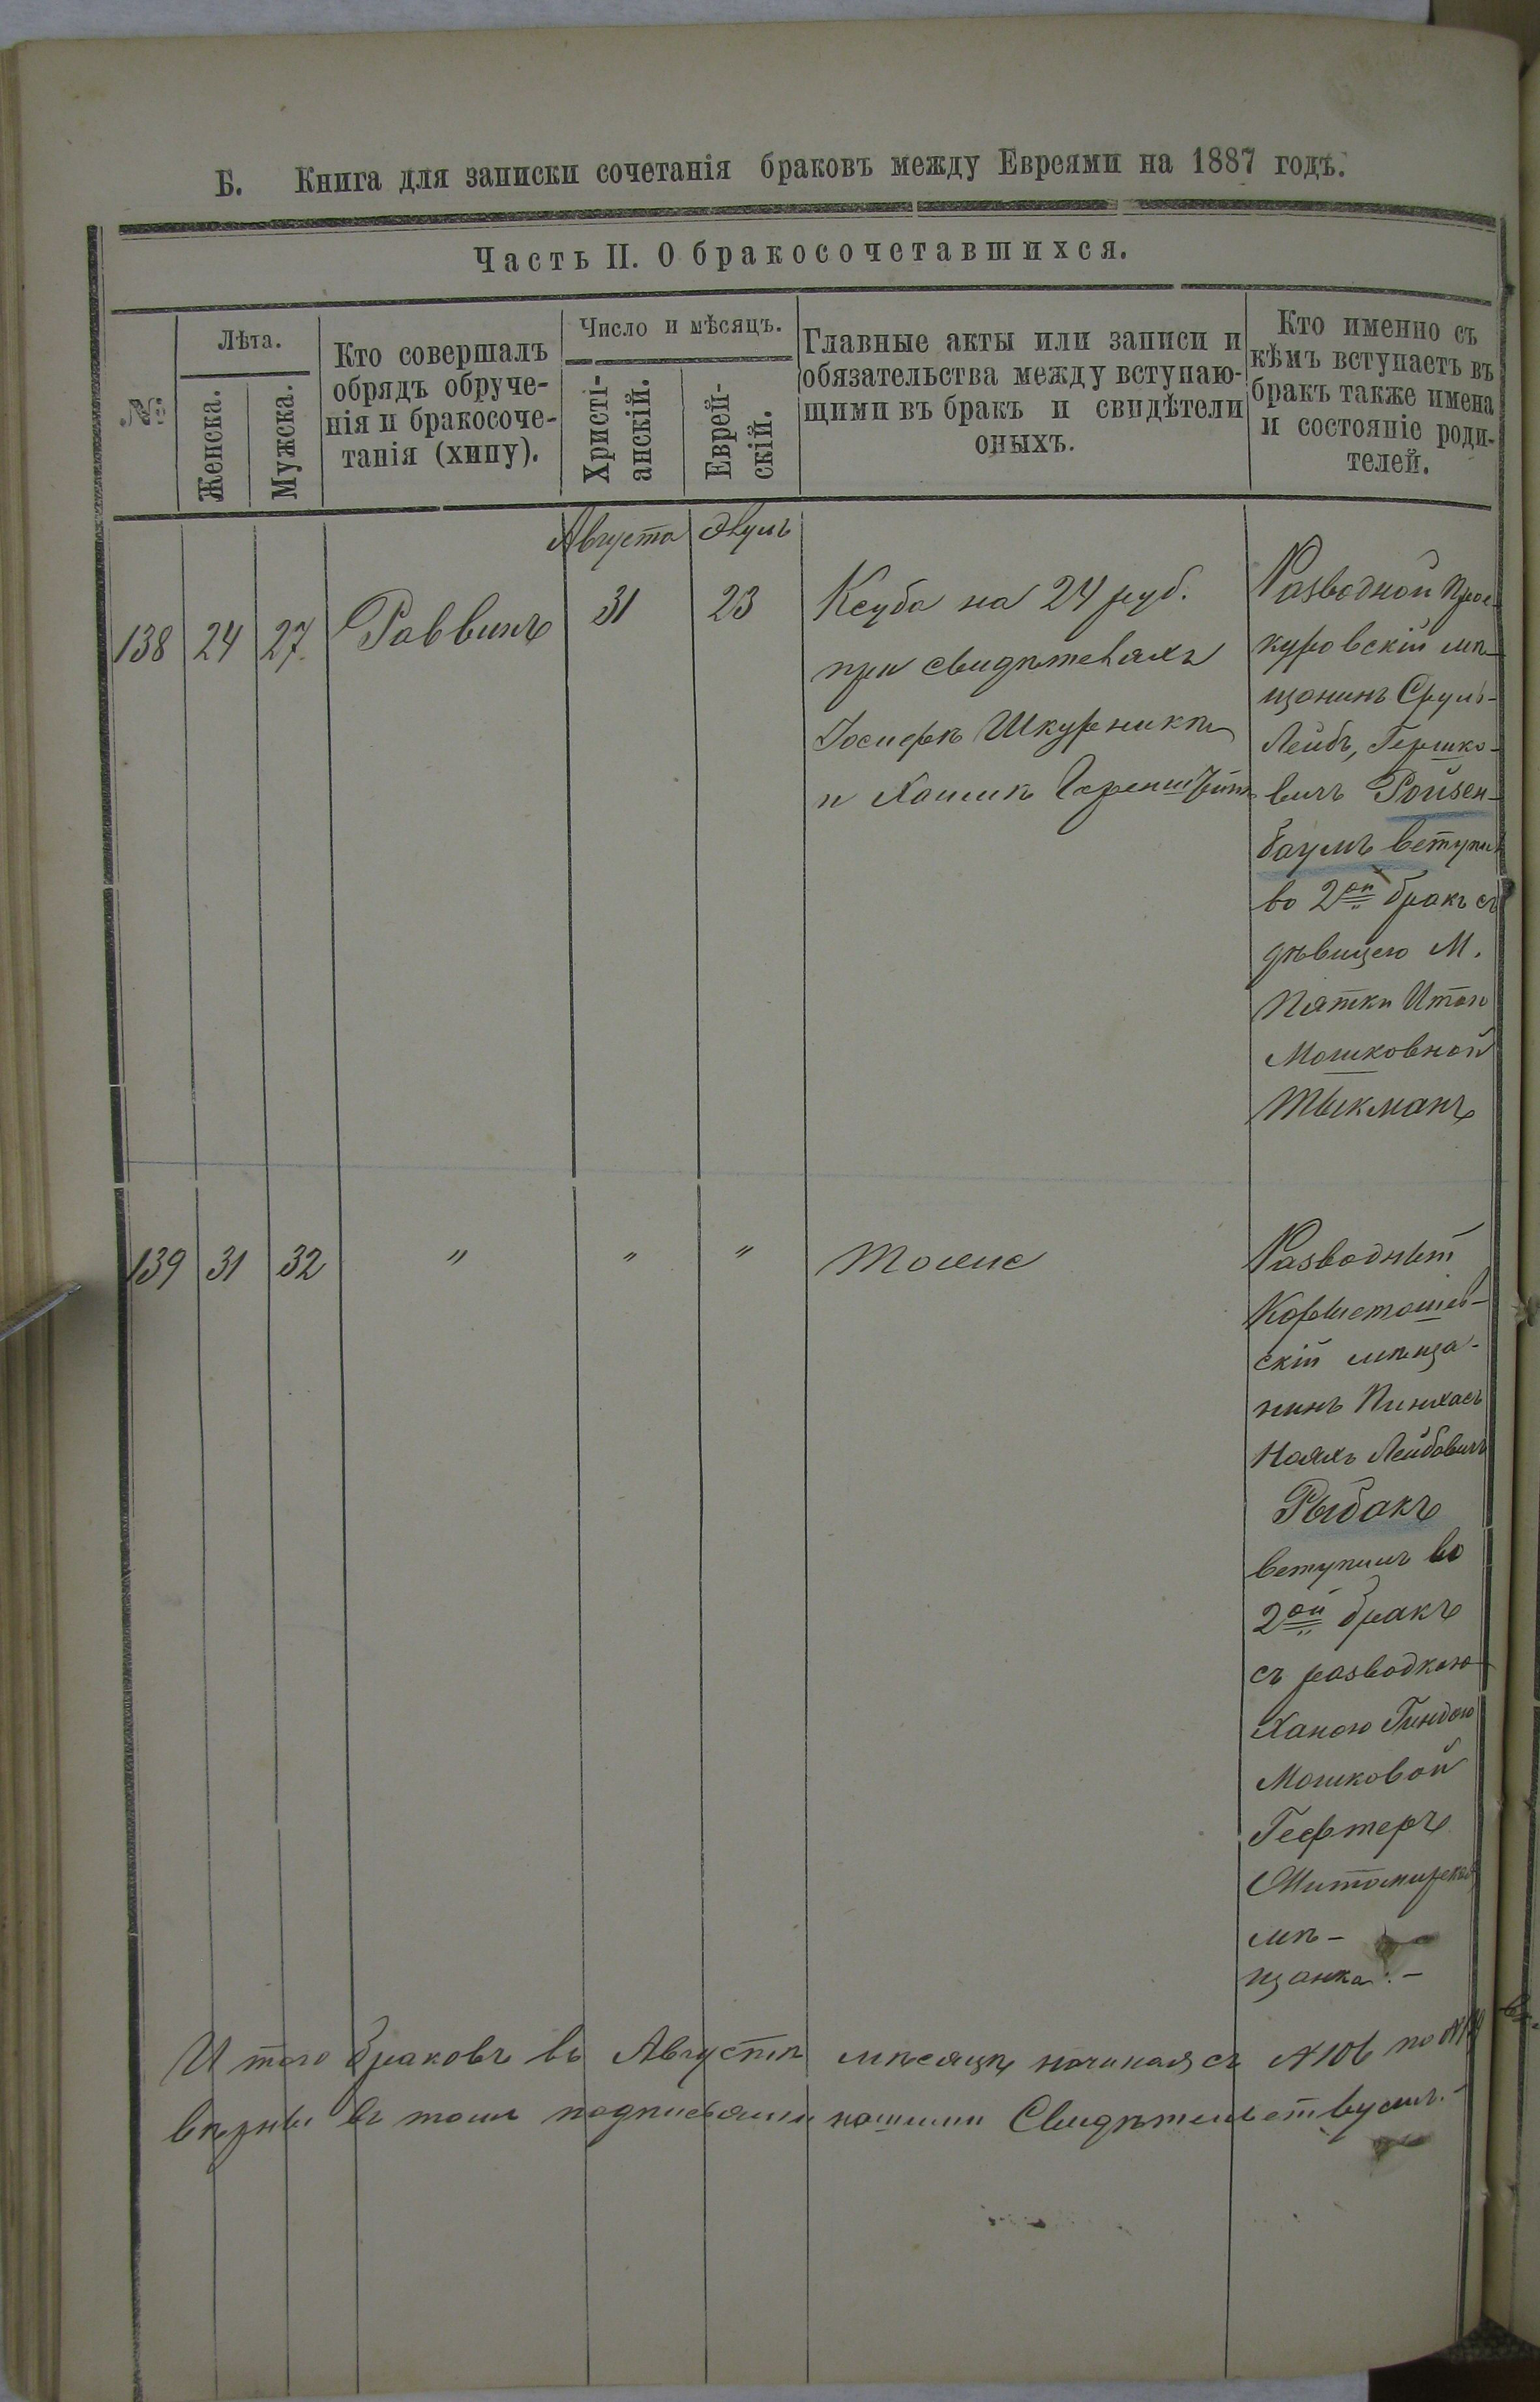 Б. Книга для записки сочетанія браковъ между Евреями на 1887 годъ.
Часть II. О бракосочетавшихся.
№
Лѣта.
Женска.
Мужска.
Кто совершалъ
обрядъ обруче-
нія и бракосоче-
танія (хипу).
Число и мѣсяцъ.
Христі-
анскій.
Еврей-
скій.
Главные акты или записи и
обязательства между вступаю-
щими въ бракъ и свидѣтели
оныхъ.
Кто именно съ
кѣмъ вступаетъ въ
бракъ также имена
и состояніе роди-
телей.
Августа Элулъ
138 24 27 Раввинъ 31 23
Ксуба на 24 руб.
при свидѣтеляхъ
Іосифѣ Шкурникѣ
и Хаимѣ
Разводной Прос-
куровскій мѣ-
щанинъ Сруль-
Лейбъ, Гершко-
вичъ Ройзен-
баумъ вступил
во 2ой бракъ съ
дѣвицею М.
Пятки Итою
Мошковной
Тыкманъ
139 31 32 " " " Тоже
Разводный
Коростошев-
скій мѣща-
нинъ Пинхасъ
Нояхъ Лейбовичъ
Рыбакъ
вступилъ во
2ой бракъ
съ разводкою
Ханою Гиндою
Мошковой
Гефтеръ
Житомирской
мѣ-
щанка.-
Итого браковъ въ Августѣ мѣсяцѣ начиная съ №106 по №139
вѣрны въ томъ подписями нашими Свидѣтельствуемъ.-